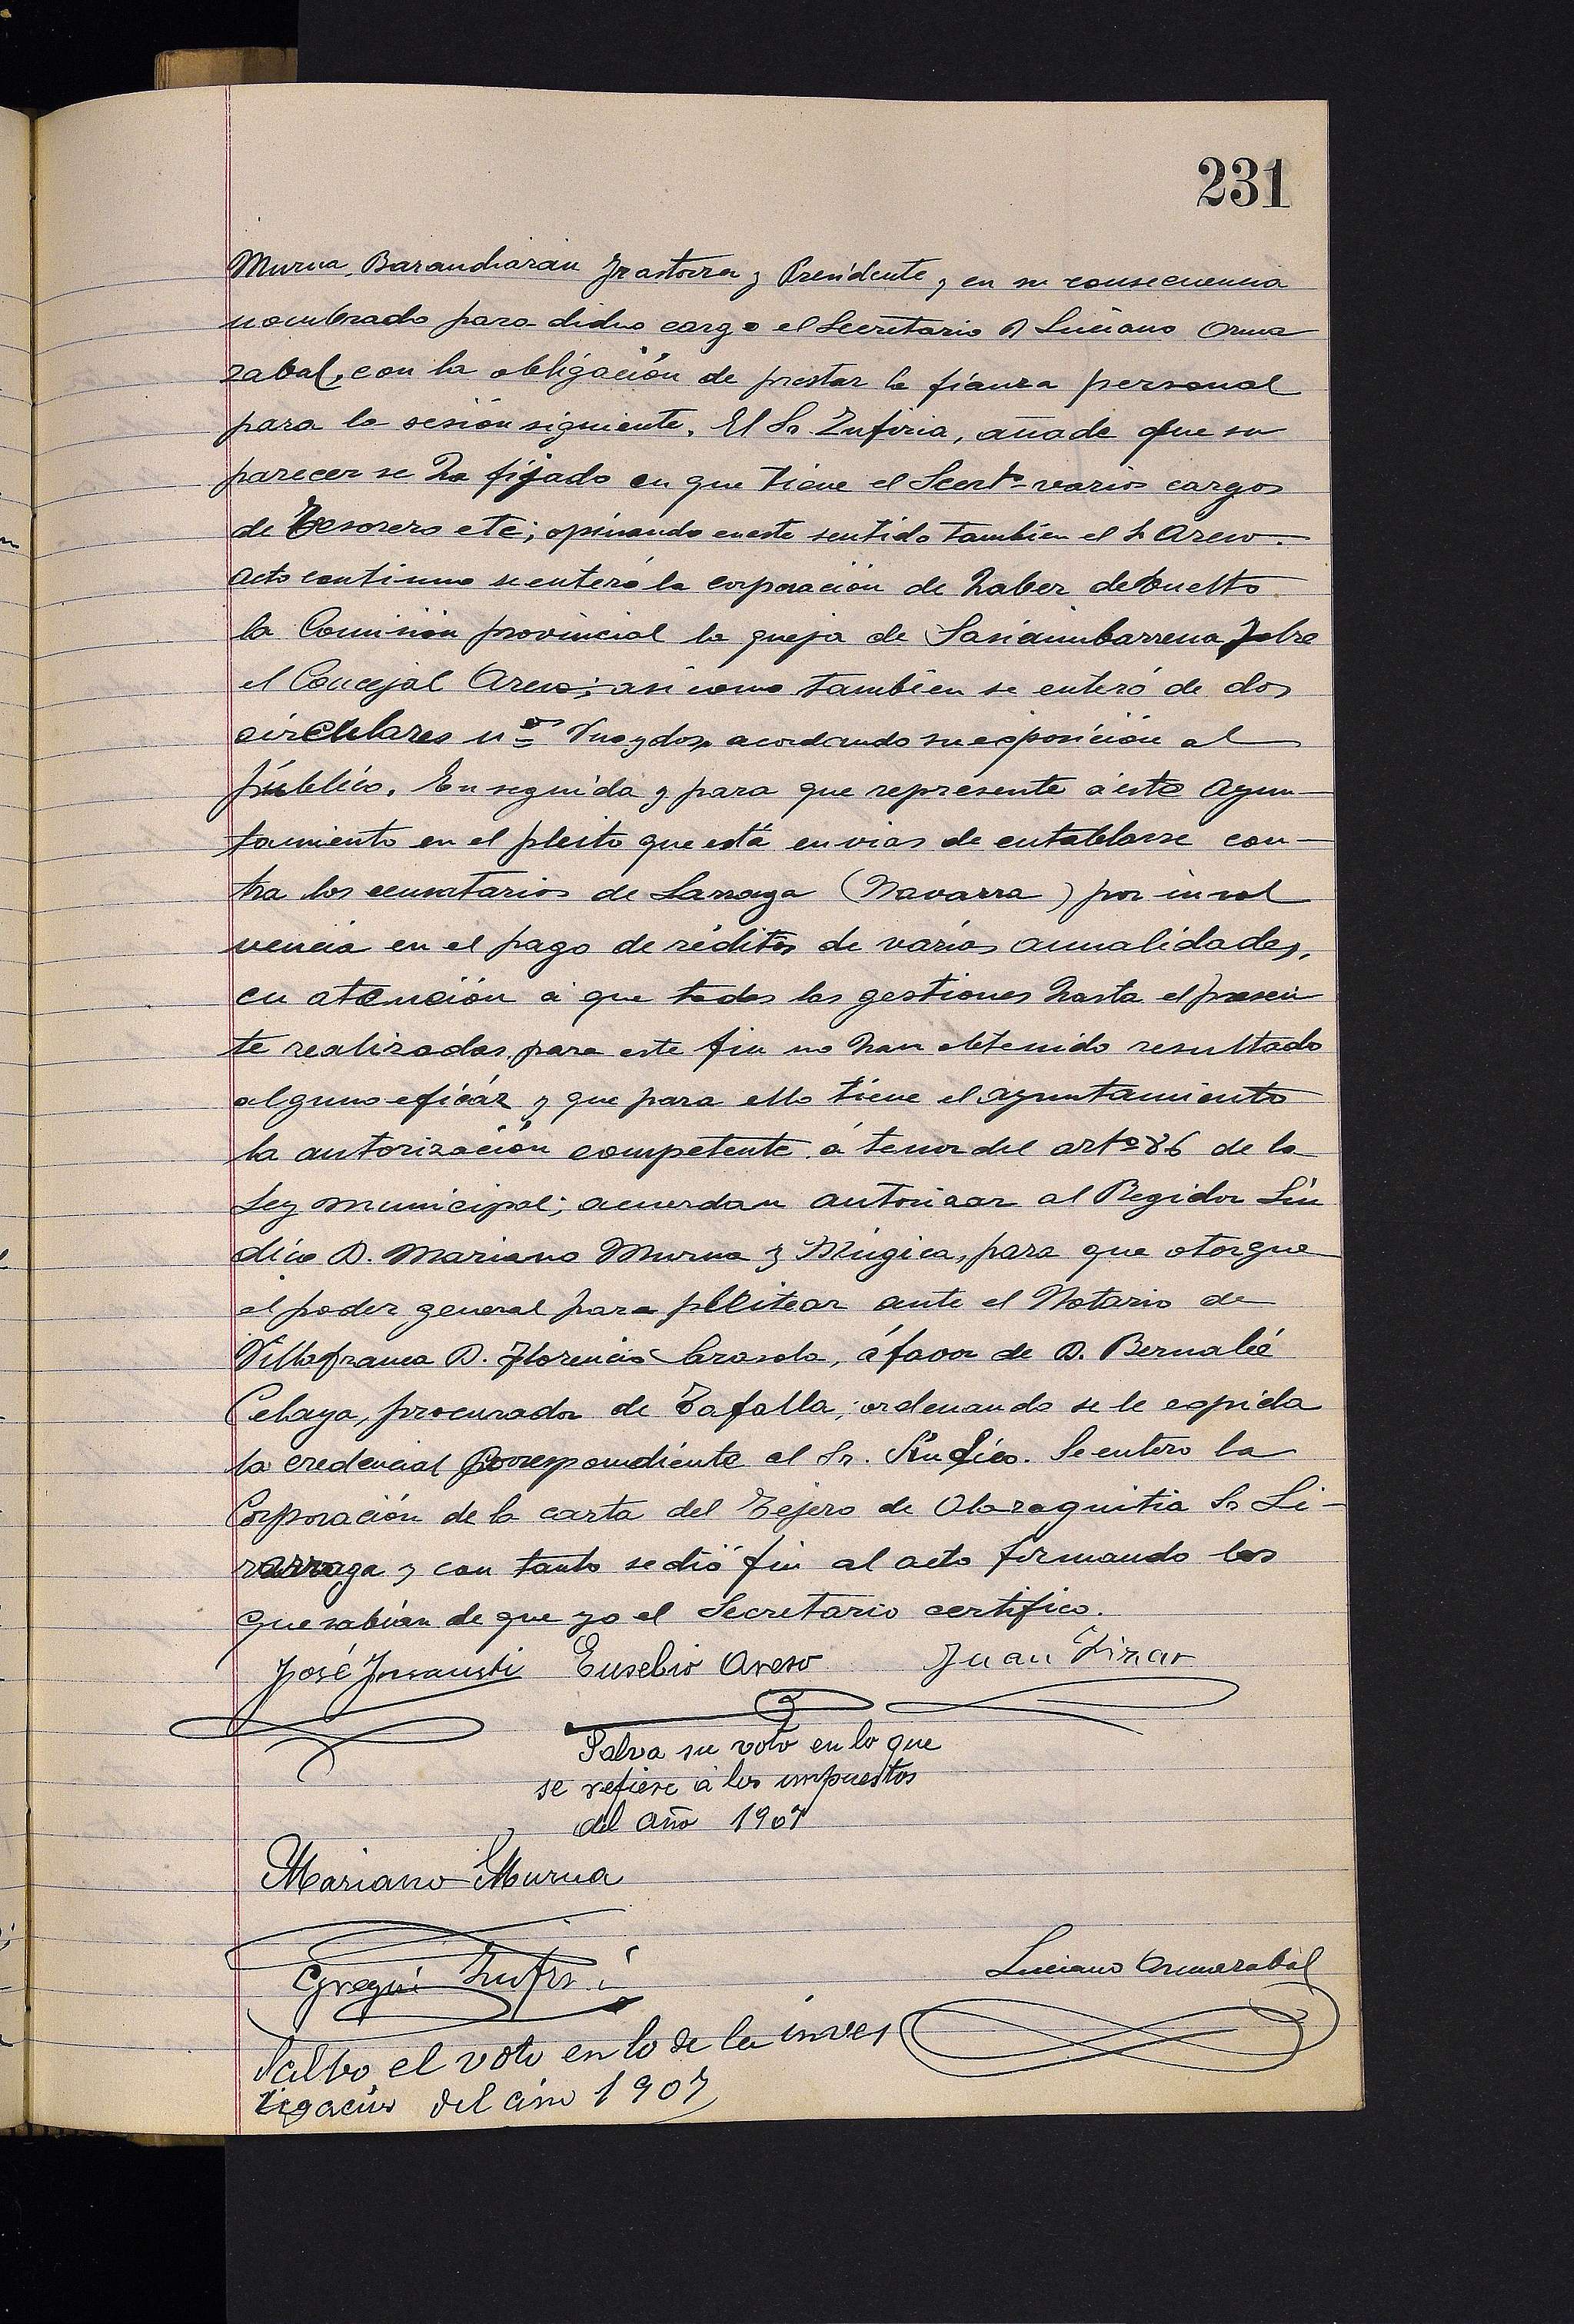 231
Murua, Barandiaran Irastorza y Presidente, y en su consecuencia
nombrado para dicho cargo el Secretario D Luciano Orma
zabal, con la obligación de prestar la fianza personal
para la sesión siguiente. El Sr Zufiria, añade que su
parecer se ha fijado en que tiene el Secrtº varios cargos
de Tesorero etc; opinando eneste sentido tambien el Sr Areso.
Acto continuo se enteró la corporación de haber debuelto
la Comisión provincial la queja de Sasiambarrena sobre
el Concejal Areso; asi como tambien se enteró de dos
circulares nºs Uno y dos, acordando su esposición al
público. En seguida y para que represente á este Ayun-
tamiento en el pleito que está en vias de entablarse con-
tra los censatarios de Larraga (Navarra) por insol
vencia en el pago de réditos de varias anualidades,
en atención á que todas las gestiones hasta el presen
te realizadas para este fin no han obtenido resultado
alguno eficáz y que para ello tiene el ayuntamiento
la autorización competente á tenor del artº 86 de la
Ley municipal; acuerdan autorizar al Regidor Sín
dico D. Mariano Murua y Múgica, para que otorgue
el poder general para pleitear ante el Notario de
Villafranca D. Florencio, á favor de D. Bernabé
Celaya, procurador de Tafalla; ordenando se le espida
la credencial correspondiente al Sr. Síndico. Se entero la
Corporación de la carta del Tejero de Olazaguitia Sr Li-
zarraga y con tanto se dió fin al acto firmando los
que sabían de que yo el Secretario certifico.
José Insausti Eusebio Areso Juan
Salva su voto en lo que
se refiere á los impuestos
del año 1907
Mariano Murua
Luciano Ormazabal
Gregori Zufiri
Salbo el voto en lo de la inves
tigacion del año 1907